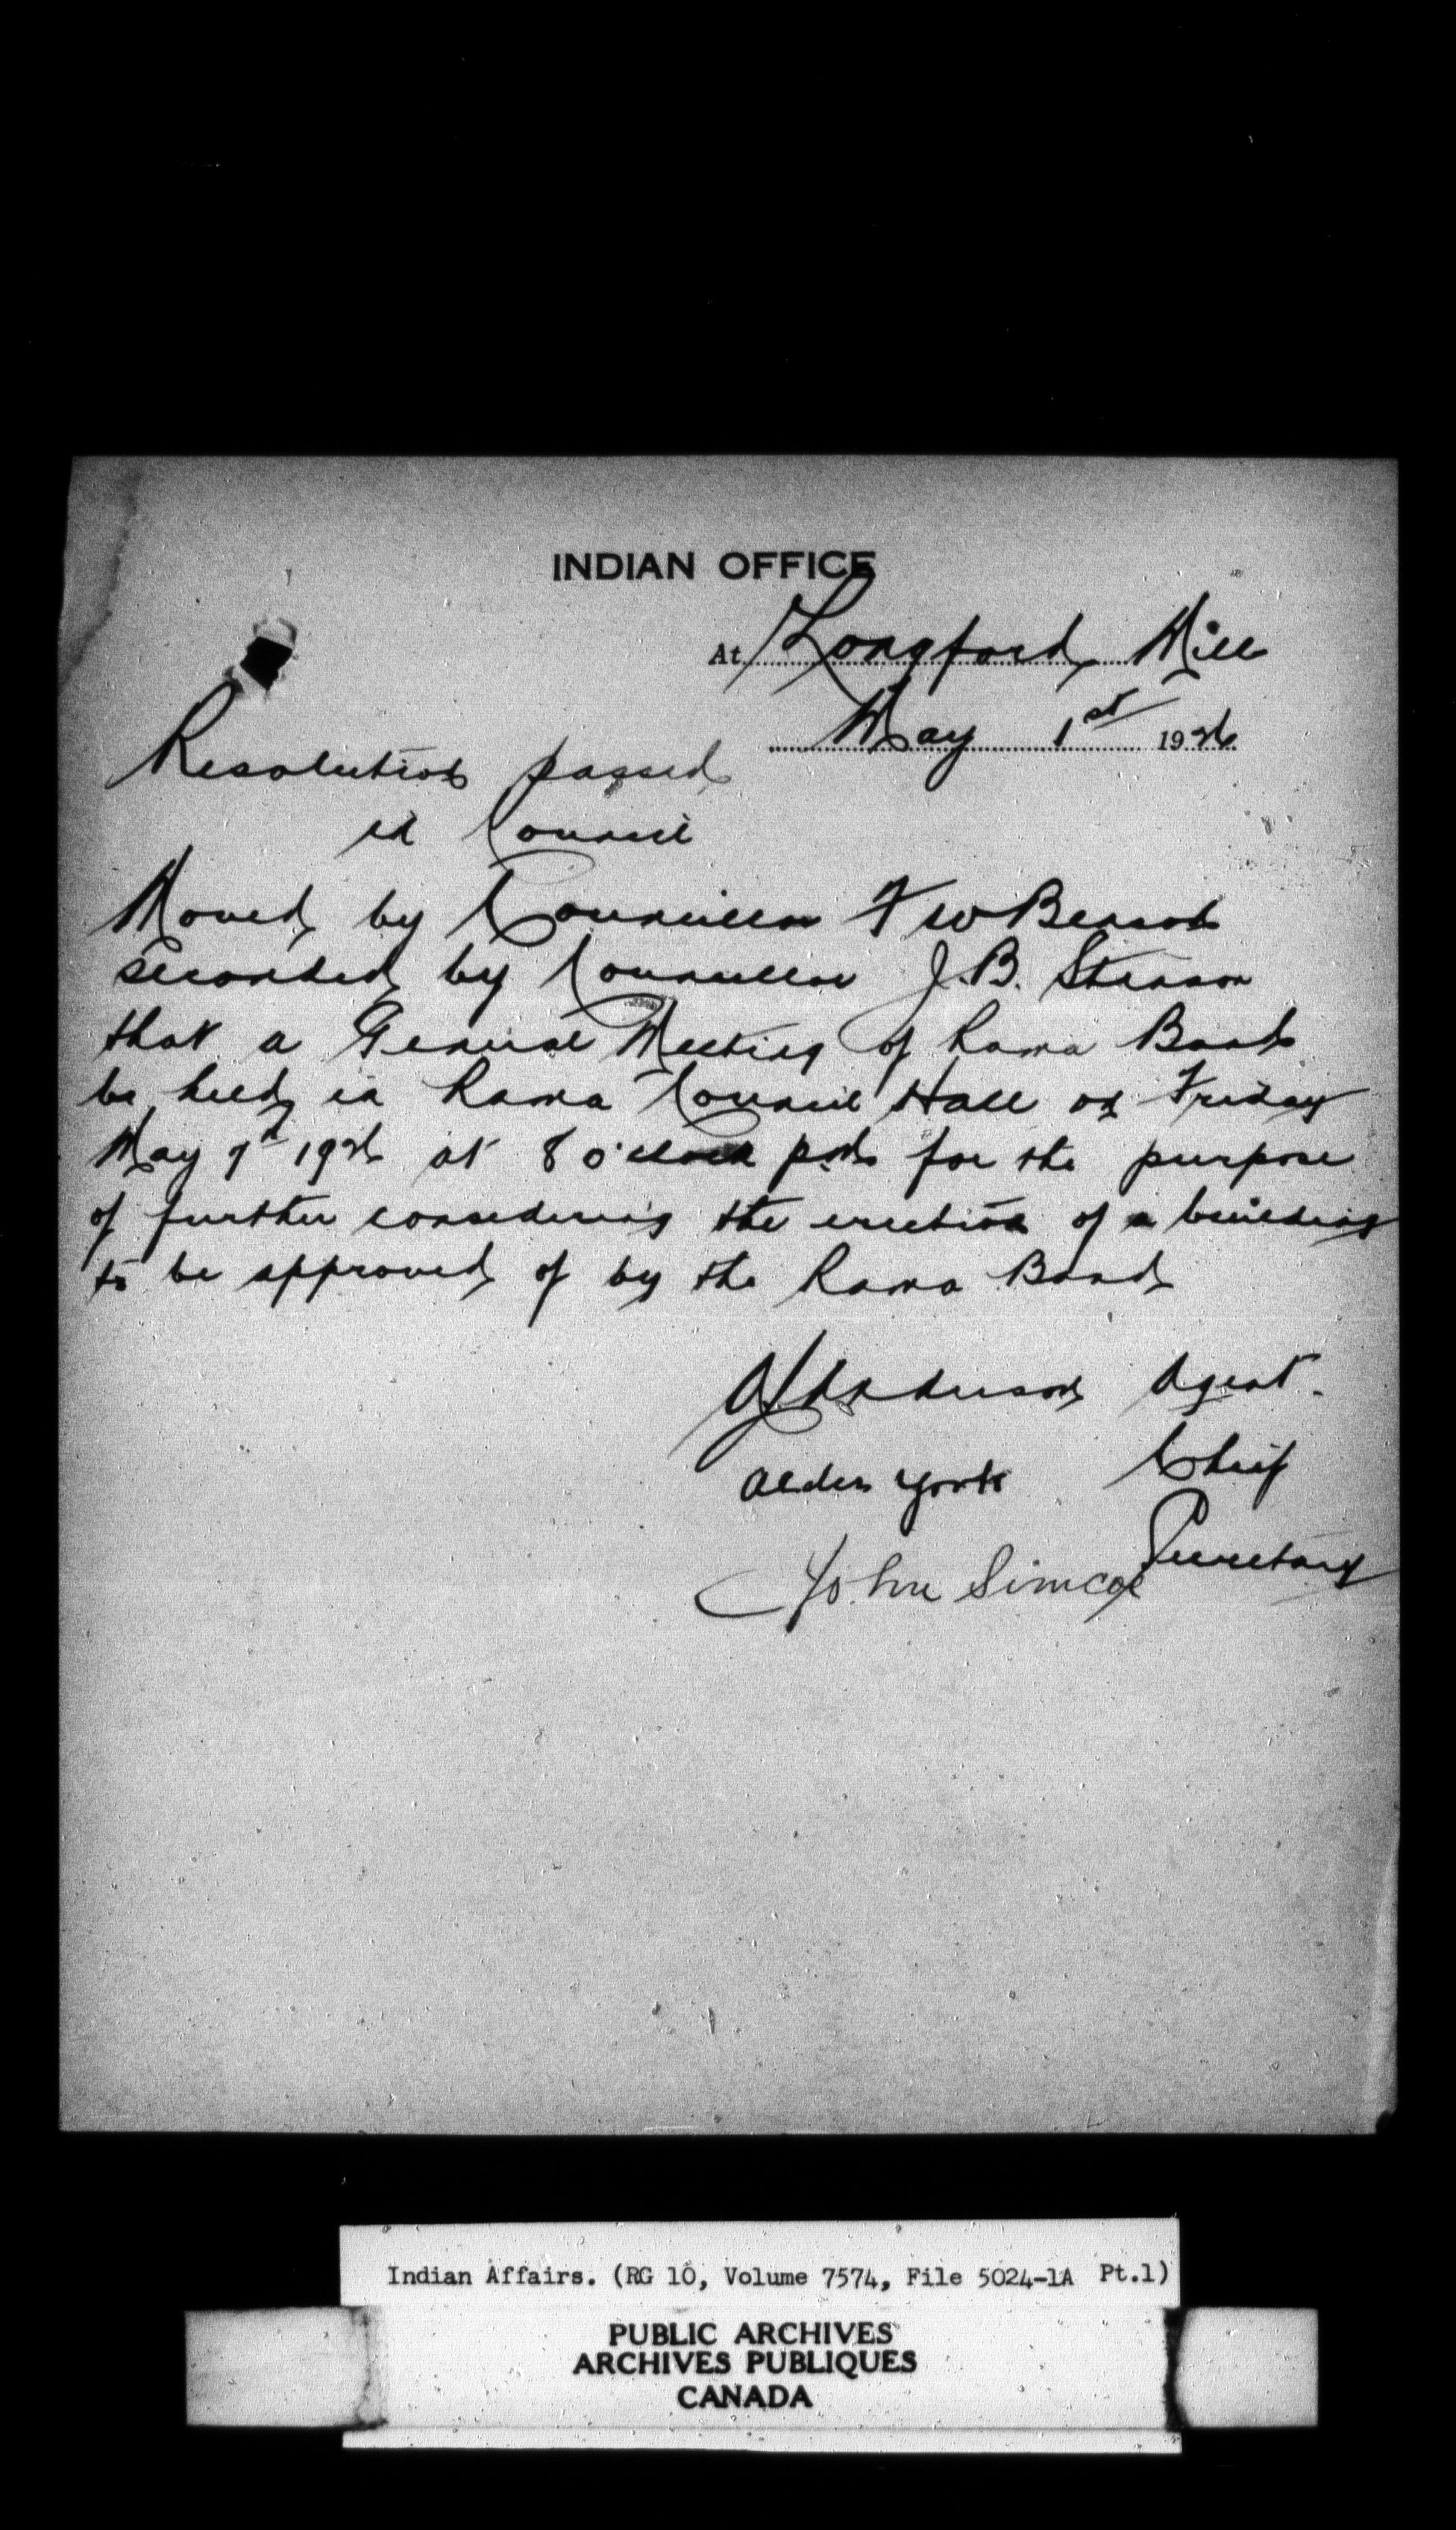 INDIAN OFFICE
At Longford Mill
May 1st 1926
Resolution passed
in Council
Moved by Councillor F W Benson
seconded by Councillor J.B. Stinson
that a General Meeting of Rama Band
be held in Rama Council Hall on Friday
May 7th 1926 at 8 o'clock pm for the purpose
of further considering the erection of a building
to be approved of by the Rama Band
Anderson Agent.
Alder York Chief
Secretary
John Simcoe
Indian Affairs. (RG 10, Volume 7574, File 5024-1A Pt.1)
PUBLIC ARCHIVES
ARCHIVES PUBLIQUES
CANADA